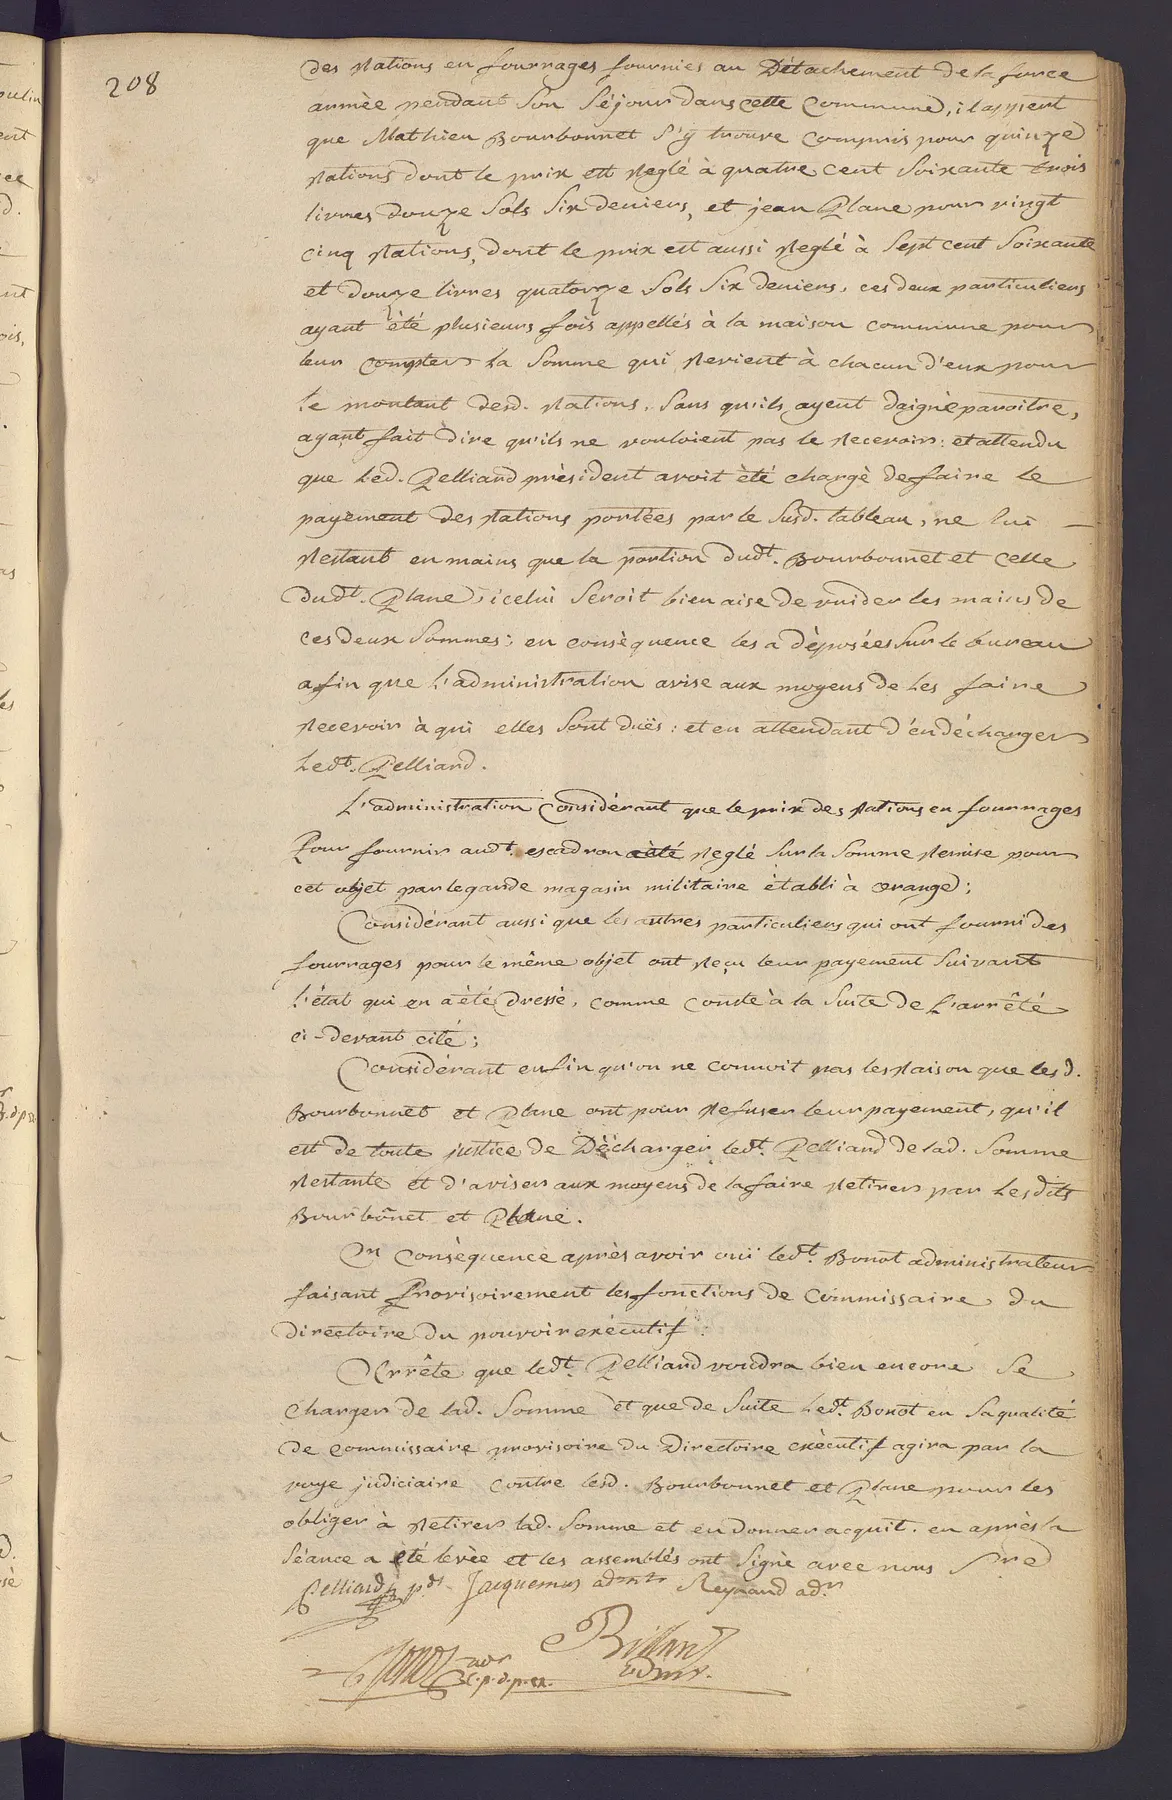 208
des Rations en fourrages fournies au Détachement de la force
armèe pendant son Séjour dans cette Commune, il appert
que Mathieu Bourbonnet s'ÿ trouve Compris pour quinze
Rations dont le prix est Reglé à quatre cent soixante trois
livres douze Sols Six deniers, et jean Plane pour vingt
cinq Rations, dont le prix est aussi Reglé à Sept cent Soixante
et douze livres quatorze Sols Six deniers, ces deux particuliers
ayant èté plusieurs fois appellés à la maison commune pour
leur compter La Somme qui Revient à chacun d'eux pour
le montant desd. Rations, Sans qu'ils ayent daignè paroitre,
ayant fait dire qu'ils ne vouloient pas le Recevoir: et attendu
que Led. Pelliard prèsident avoit èté chargè de faire le
payement des Rations portèes par le Susd. tableau, ne lui
Restant en mains que la portion dudt. Bourbonnet et Celle
Dudt. Plane, icelui Seroit bien aise de vuider les mains de
ces deux Sommes; en consèquence les a dèposées sur le bureau
afin que L'administration avise aux moyens de Les faire
Recevoir à qui elles Sont duës: et en attendant d'en décharger
Ledt. Pelliard.
L'administration Considérant que le prix des Rations en fourrages
Pour fournir audt. escadron a èté Reglé sur la Somme Remise pour
cet objet par le garde magasin militaire ètabli à orange;
Considérant aussi que les autres particuliers qui ont fourni des
fourrages pour le même objet ont Reçu leur payement suivant
l'état qui en a été dressé, comme conste à la suite de L'arrêté
ci-devant cité;
Considérant enfin qu'on ne connoit pas les Raison que lesd.
Bourbonnet et Plane ont pour Refuser leur payement, qu'il
est de toute justice de Dècharger ledt. Pelliard de lad. Somme
Restante et d'aviser aux moyens de la faire Retirer par Lesdits
Bourbõnet et Plane.
En Consèquence après avoir ouï ledt. Bonot administrateur
faisant Provisoirement les fonctions de Commissaire du
directoire du pouvoir exècutif:
Arrête que ledt. Pelliard voudra bien encore se
charger de lad. Somme et que de Suite Ledt. Bonot en Sa qualité
de commissaire provisoire du Directoire exècutif agira par la
voye judiciaire contre lesd. Bourbonnet et Plane pour les
obliger à Retirer lad. Somme et en donner acquit. en après la
Séance a été levèe et les assemblés ont Signè avec nous Sre
Pelliard pdt Jacquemus admtr Reynaud adr.
Bonot adr Billard
C.p.d.p.ex. admr.